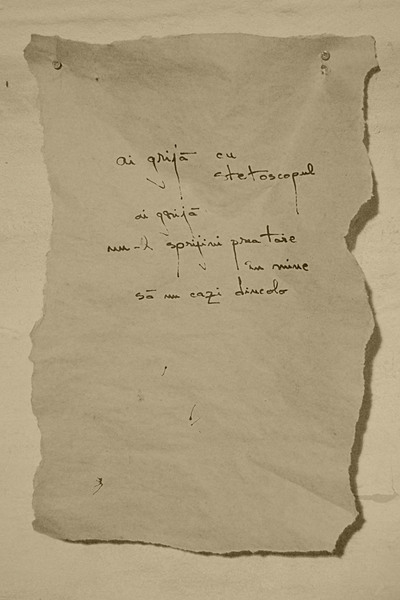 ai grijă cu
stetoscopul
ai grijă
nu-l sprijini prea tare
în mine
să nu cazi dincolo